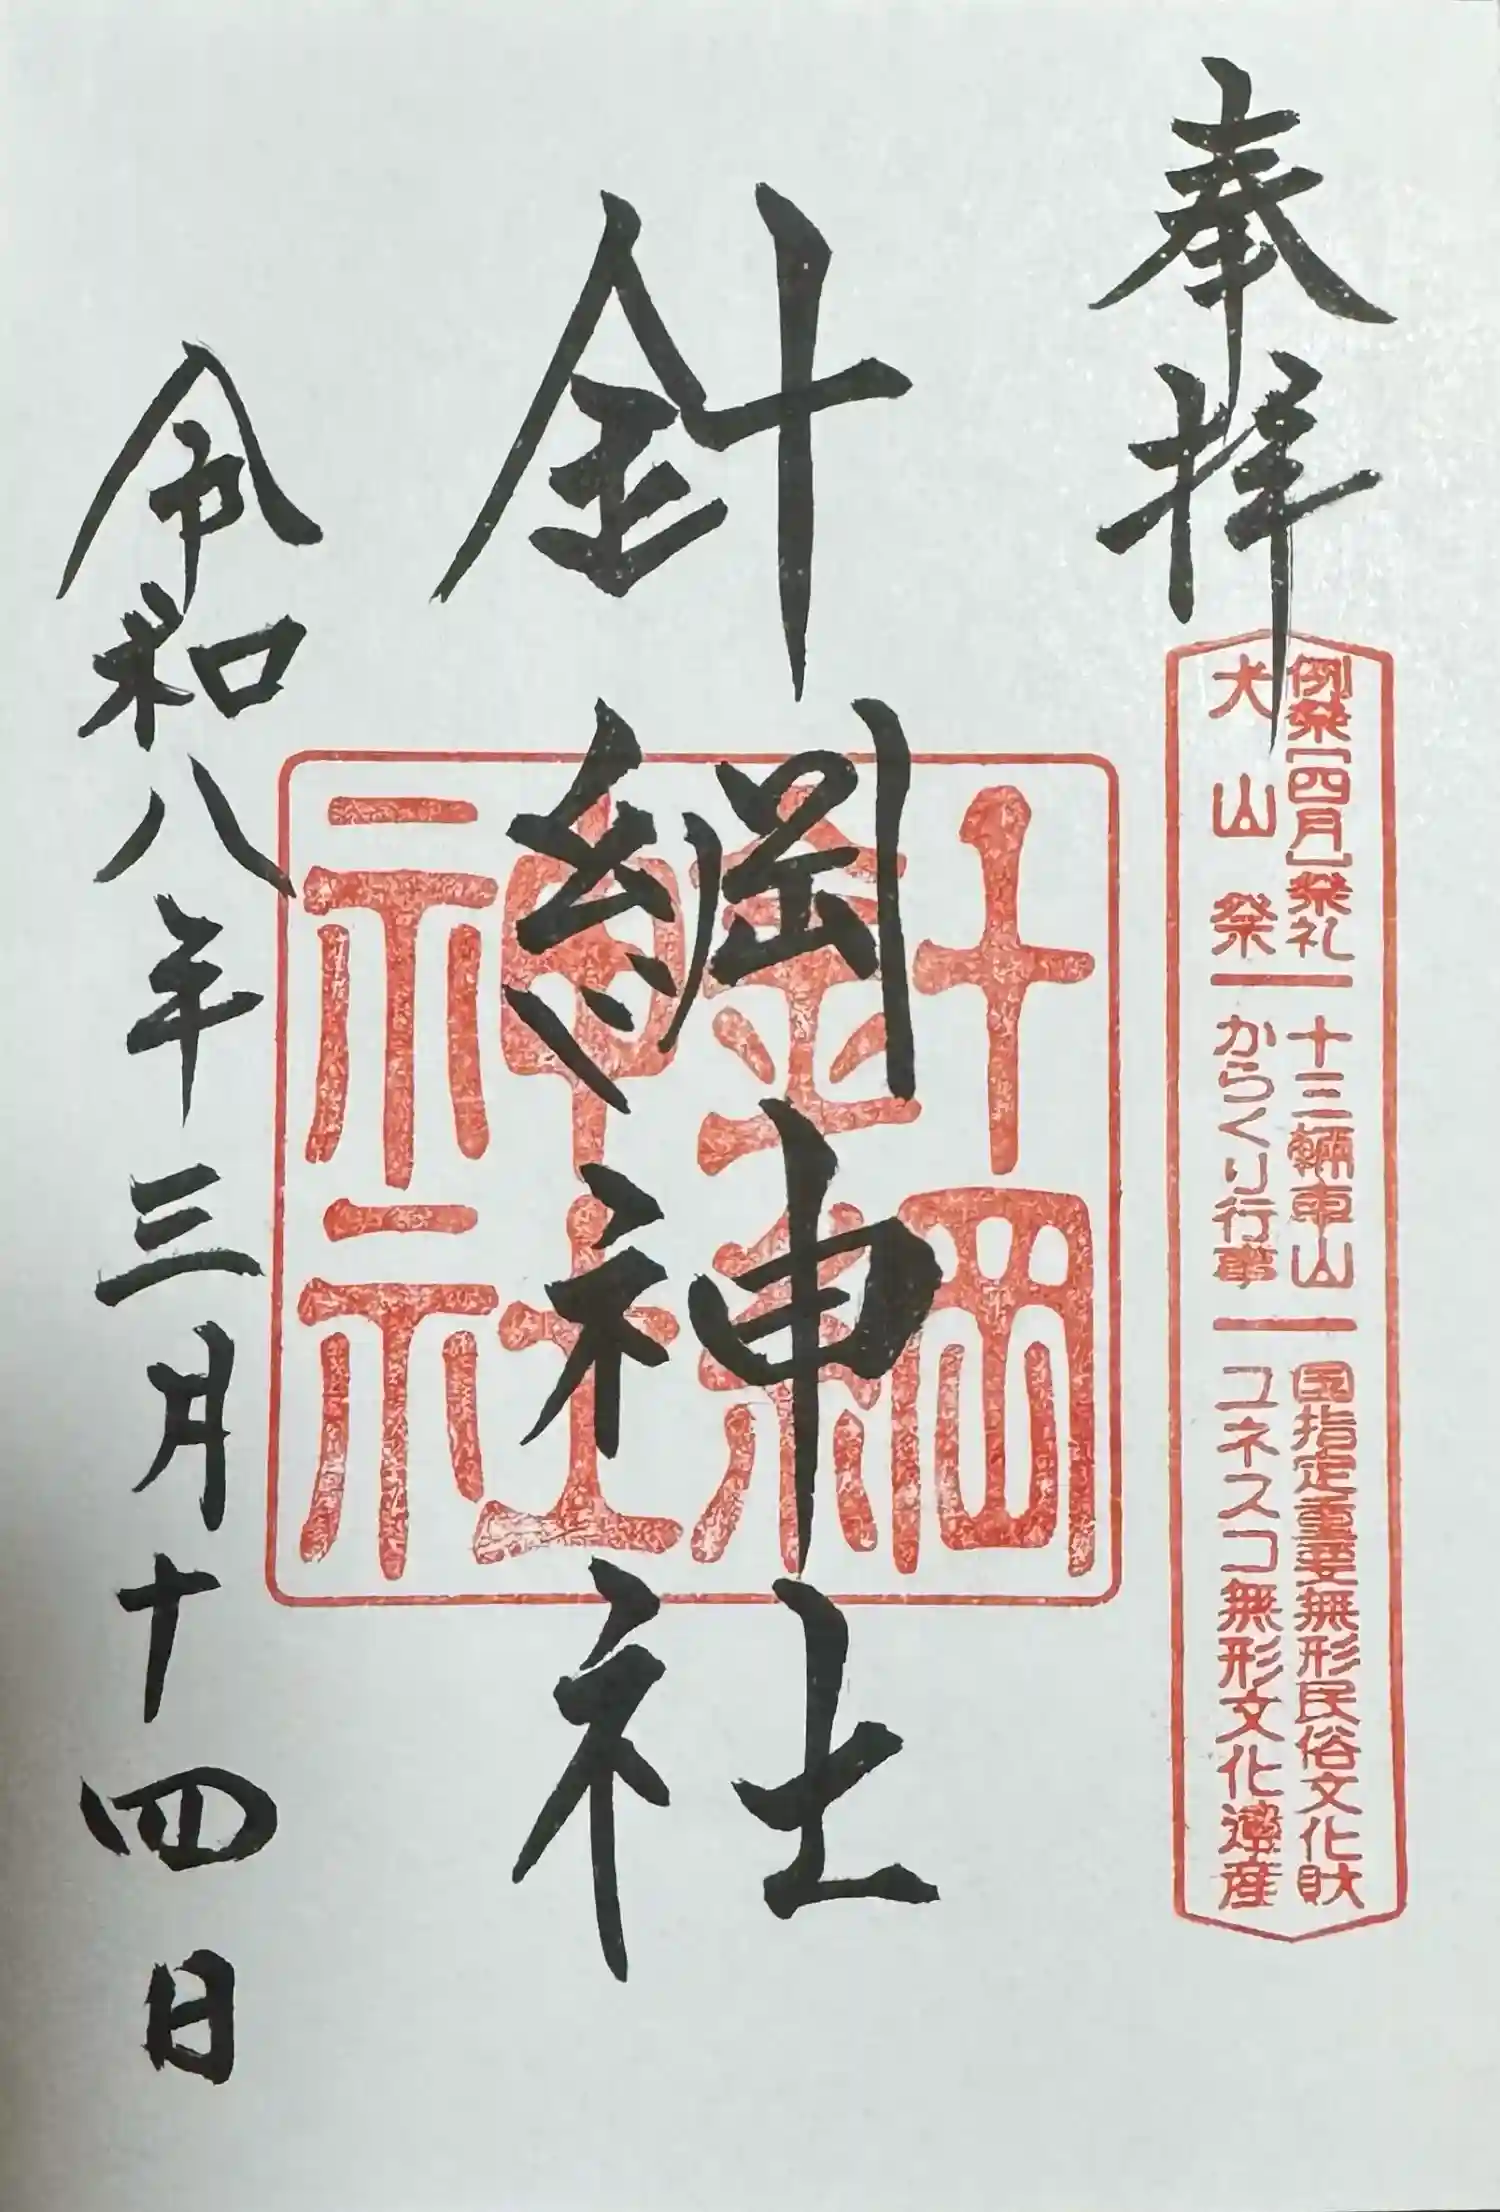 奉拝
例祭[四月]祭礼 十三輛車山 国指定重要無形民俗文化財
犬山祭 からくり行事 ユネスコ無形文化遺産
針綱神社
針綱神社
令和八年三月十四日